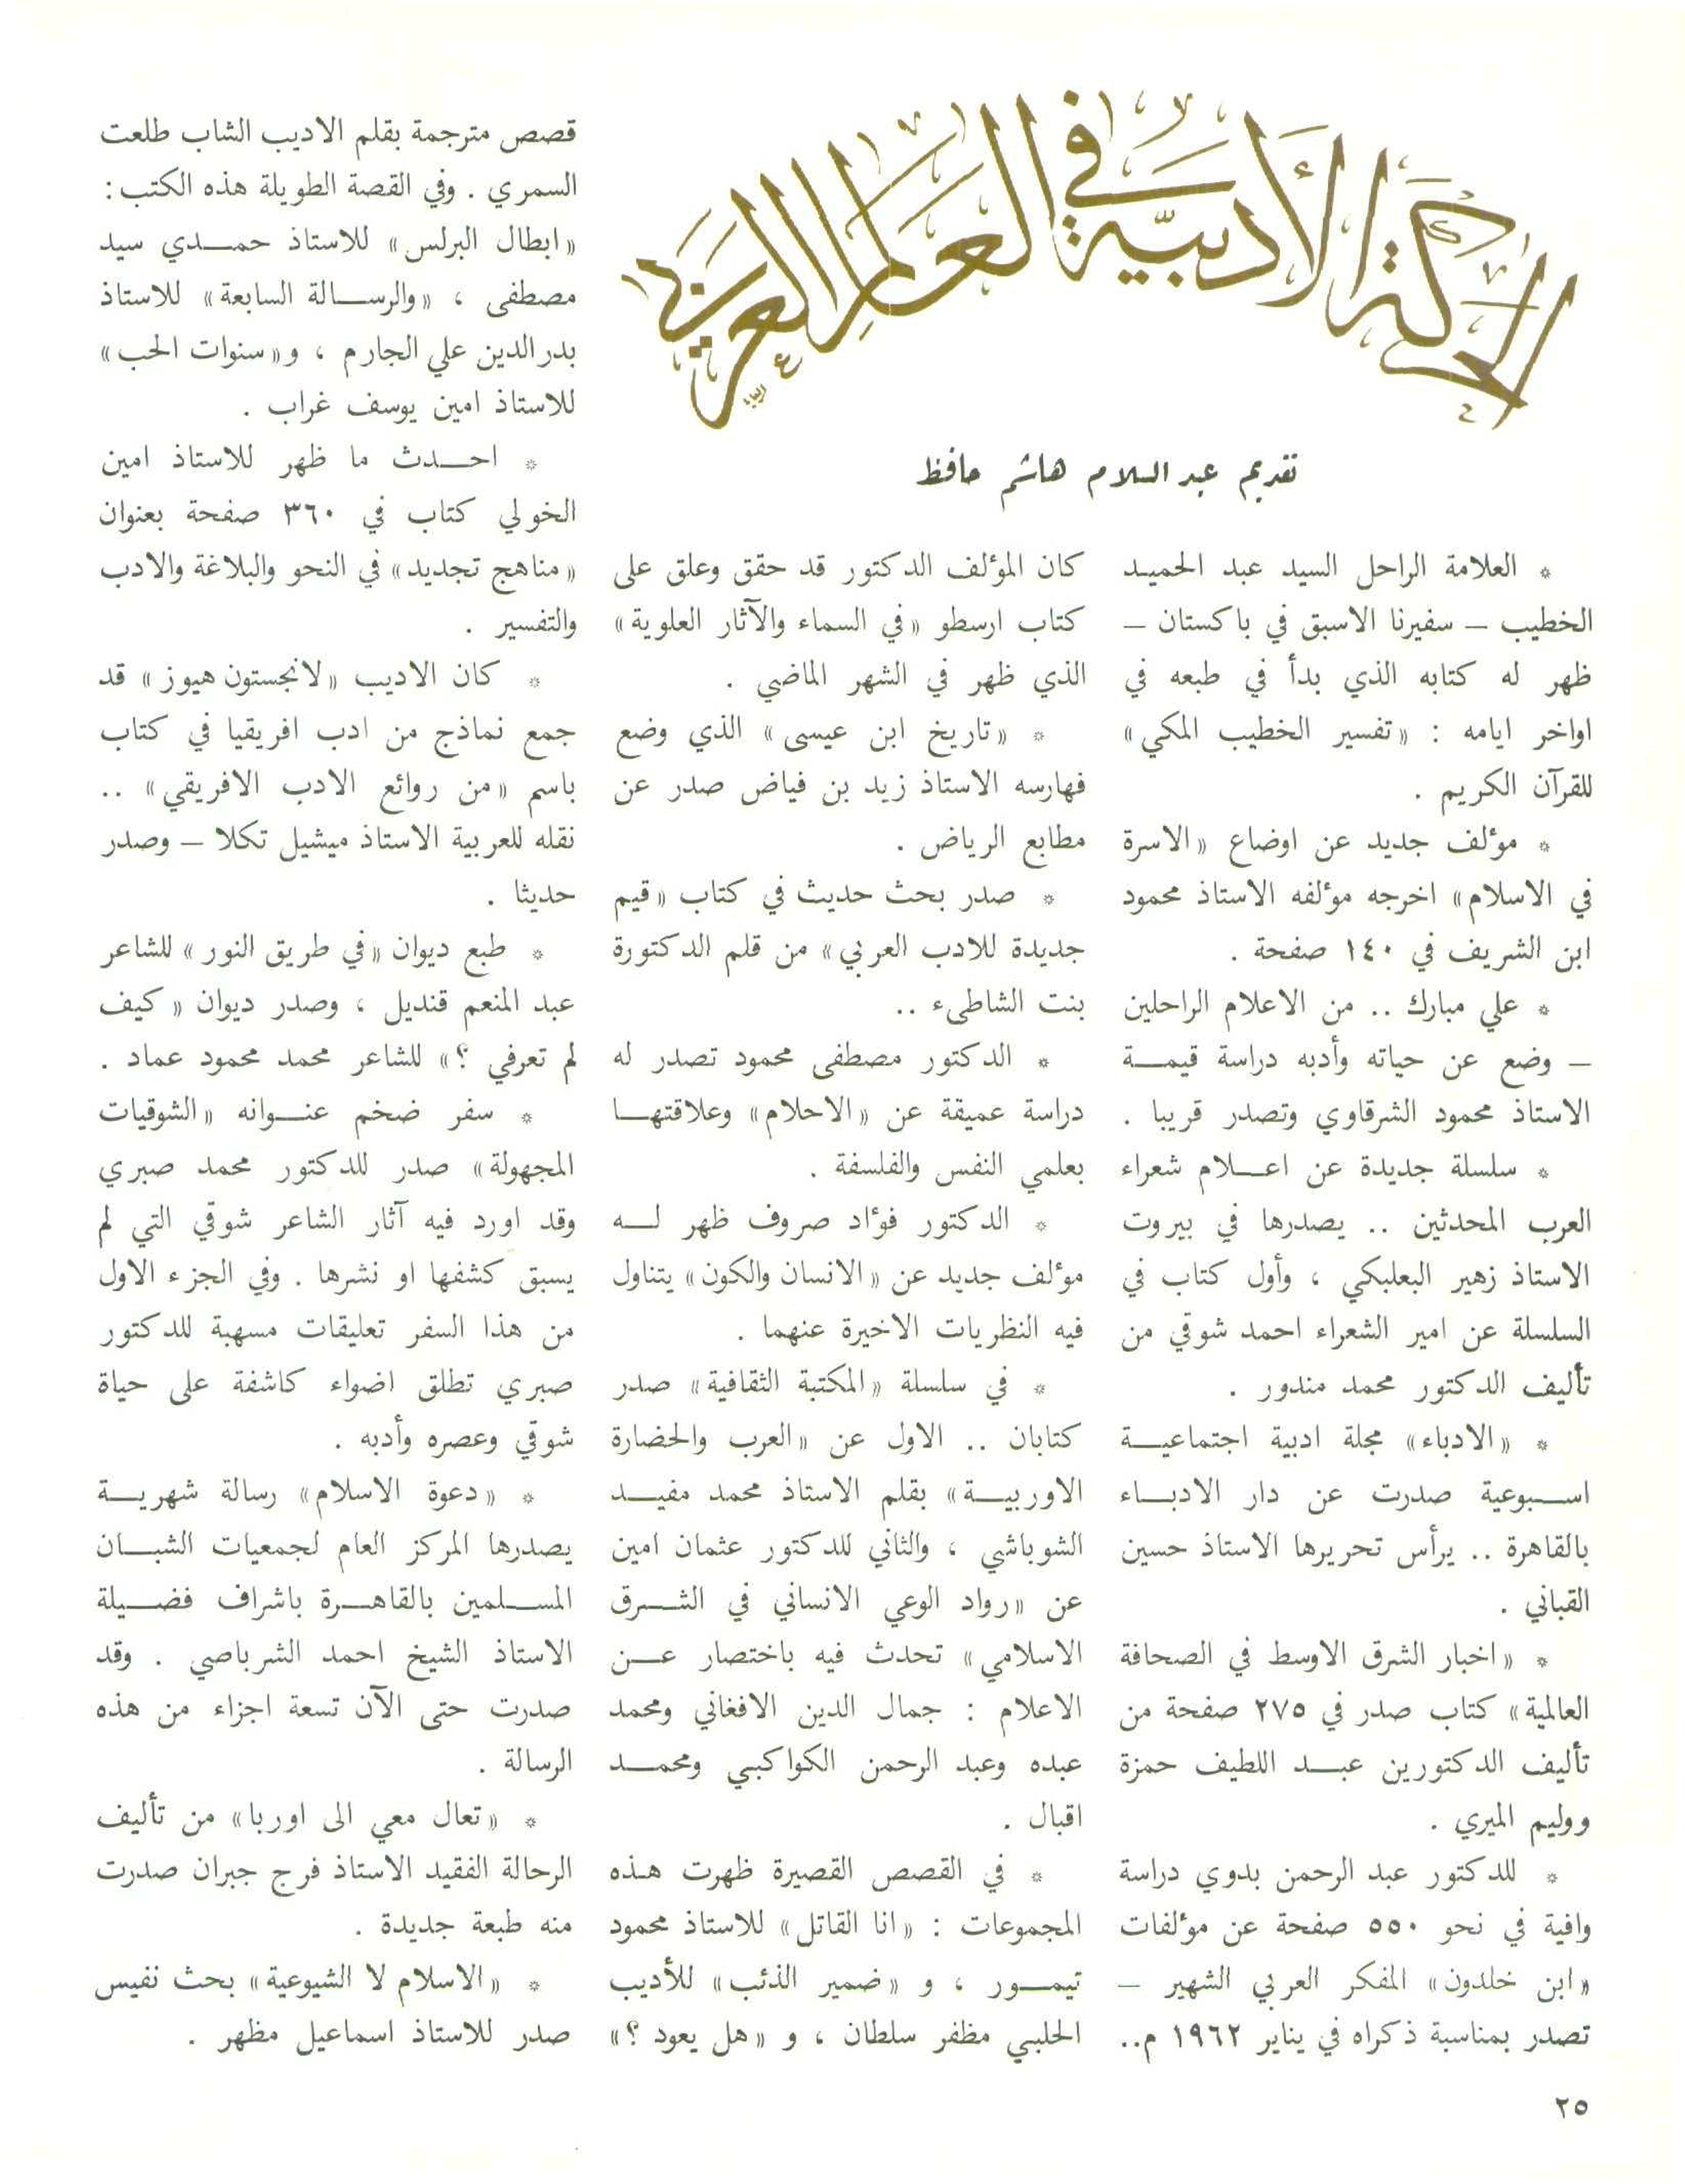 الحركة الأدبية في العالم العربي
تقديم عبد السلام هاشم حافظ
* العلامة الراحل السيد عبد الحميد
الخطيب – سفيرنا الاسبق في باكستان –
ظهر له كتابه الذي بدأ في طبعه في
اواخر ايامه : «تفسير الخطيب المكي»
للقرآن الكريم .
* مؤلف جديد عن اوضاع «الاسرة
في الاسلام» اخرجه مؤلفه الاستاذ محمود
ابن الشريف في ١٤٠ صفحة .
* علي مبارك .. من الاعلام الراحلين
– وضع عن حياته وأدبه دراسة قيمة
الاستاذ محمود الشرقاوي وتصدر قريبا .
* سلسلة جديدة عن اعلام شعراء
العرب المحدثين .. يصدرها في بيروت
الاستاذ زهير البعلبكي ، وأول كتاب في
السلسلة عن امير الشعراء احمد شوقي من
تأليف الدكتور محمد مندور .
* «الادباء» مجلة ادبية اجتماعية
اسبوعية صدرت عن دار الادباء
بالقاهرة .. يرأس تحريرها الاستاذ حسين
القباني .
* «اخبار الشرق الاوسط في الصحافة
العالمية» كتاب صدر في ٢٧٥ صفحة من
تأليف الدكتورين عبد اللطيف حمزة
ووليم الميري .
* للدكتور عبد الرحمن بدوي دراسة
وافية في نحو ٥٥٠ صفحة عن مؤلفات
«ابن خلدون» المفكر العربي الشهير –
تصدر بمناسبة ذكراه في يناير ١٩٦٢ م..
كان المؤلف الدكتور قد حقق وعلق على
كتاب ارسطو «في السماء والآثار العلوية»
الذي ظهر في الشهر الماضي .
* «تاريخ ابن عيسى» الذي وضع
فهارسه الاستاذ زيد بن فياض صدر عن
مطابع الرياض .
* صدر بحث حديث في كتاب «قيم
جديدة للادب العربي» من قلم الدكتورة
بنت الشاطىء ..
* الدكتور مصطفى محمود تصدر له
دراسة عميقة عن «الاحلام» وعلاقتها
بعلمي النفس والفلسفة .
* الدكتور فؤاد صروف ظهر له
مؤلف جديد عن «الانسان والكون» يتناول
فيه النظريات الاخيرة عنهما .
* في سلسلة «المكتبة الثقافية» صدر
كتابان .. الاول عن «العرب والحضارة
الاوربية» بقلم الاستاذ محمد مفيد
الشوباشي ، والثاني للدكتور عثمان امين
عن «رواد الوعي الانساني في الشرق
الاسلامي» تحدث فيه باختصار عن
الاعلام : جمال الدين الافغاني ومحمد
عبده وعبد الرحمن الكواكبي ومحمد
اقبال .
* في القصص القصيرة ظهرت هذه
المجموعات : «انا القاتل» للاستاذ محمود
تيمور ، و «ضمير الذئب» للأديب
الحلبي مظفر سلطان ، و «هل يعود ؟»
قصص مترجمة بقلم الاديب الشاب طلعت
السمري . وفي القصة الطويلة هذه الكتب :
«ابطال البرلس» للاستاذ حمدي سيد
مصطفى ، «والرسالة السابعة» للاستاذ
بدر الدين علي الجارم ، و«سنوات الحب»
للاستاذ امين يوسف غراب .
* احدث ما ظهر للاستاذ امين
الخولي كتاب في ٣٦٠ صفحة بعنوان
«مناهج تجديد» في النحو والبلاغة والادب
والتفسير .
* كان الاديب «لانجستون هيوز» قد
جمع نماذج من ادب افريقيا في كتاب
باسم «من روائع الادب الافريقي» ..
نقله للعربية الاستاذ ميشيل تكلا – وصدر
حديثا .
* طبع ديوان «في طريق النور» للشاعر
عبد المنعم قنديل ، وصدر ديوان «كيف
لم تعرفي ؟» للشاعر محمد محمود عماد .
* سفر ضخم عنوانه «الشوقيات
المجهولة» صدر للدكتور محمد صبري
وقد اورد فيه آثار الشاعر شوقي التي لم
يسبق كشفها او نشرها . وفي الجزء الاول
من هذا السفر تعليقات مسهبة للدكتور
صبري تطلق اضواء كاشفة على حياة
شوقي وعصره وأدبه .
* «دعوة الاسلام» رسالة شهرية
يصدرها المركز العام لجمعيات الشبان
المسلمين بالقاهرة باشراف فضيلة
الاستاذ الشيخ احمد الشرباصي . وقد
صدرت حتى الآن تسعة اجزاء من هذه
الرسالة .
* «تعال معي الى اوربا» من تأليف
الرحالة الفقيد الاستاذ فرج جبران صدرت
منه طبعة جديدة .
* «الاسلام لا الشيوعية» بحث نفيس
صدر للاستاذ اسماعيل مظهر .
٢٥